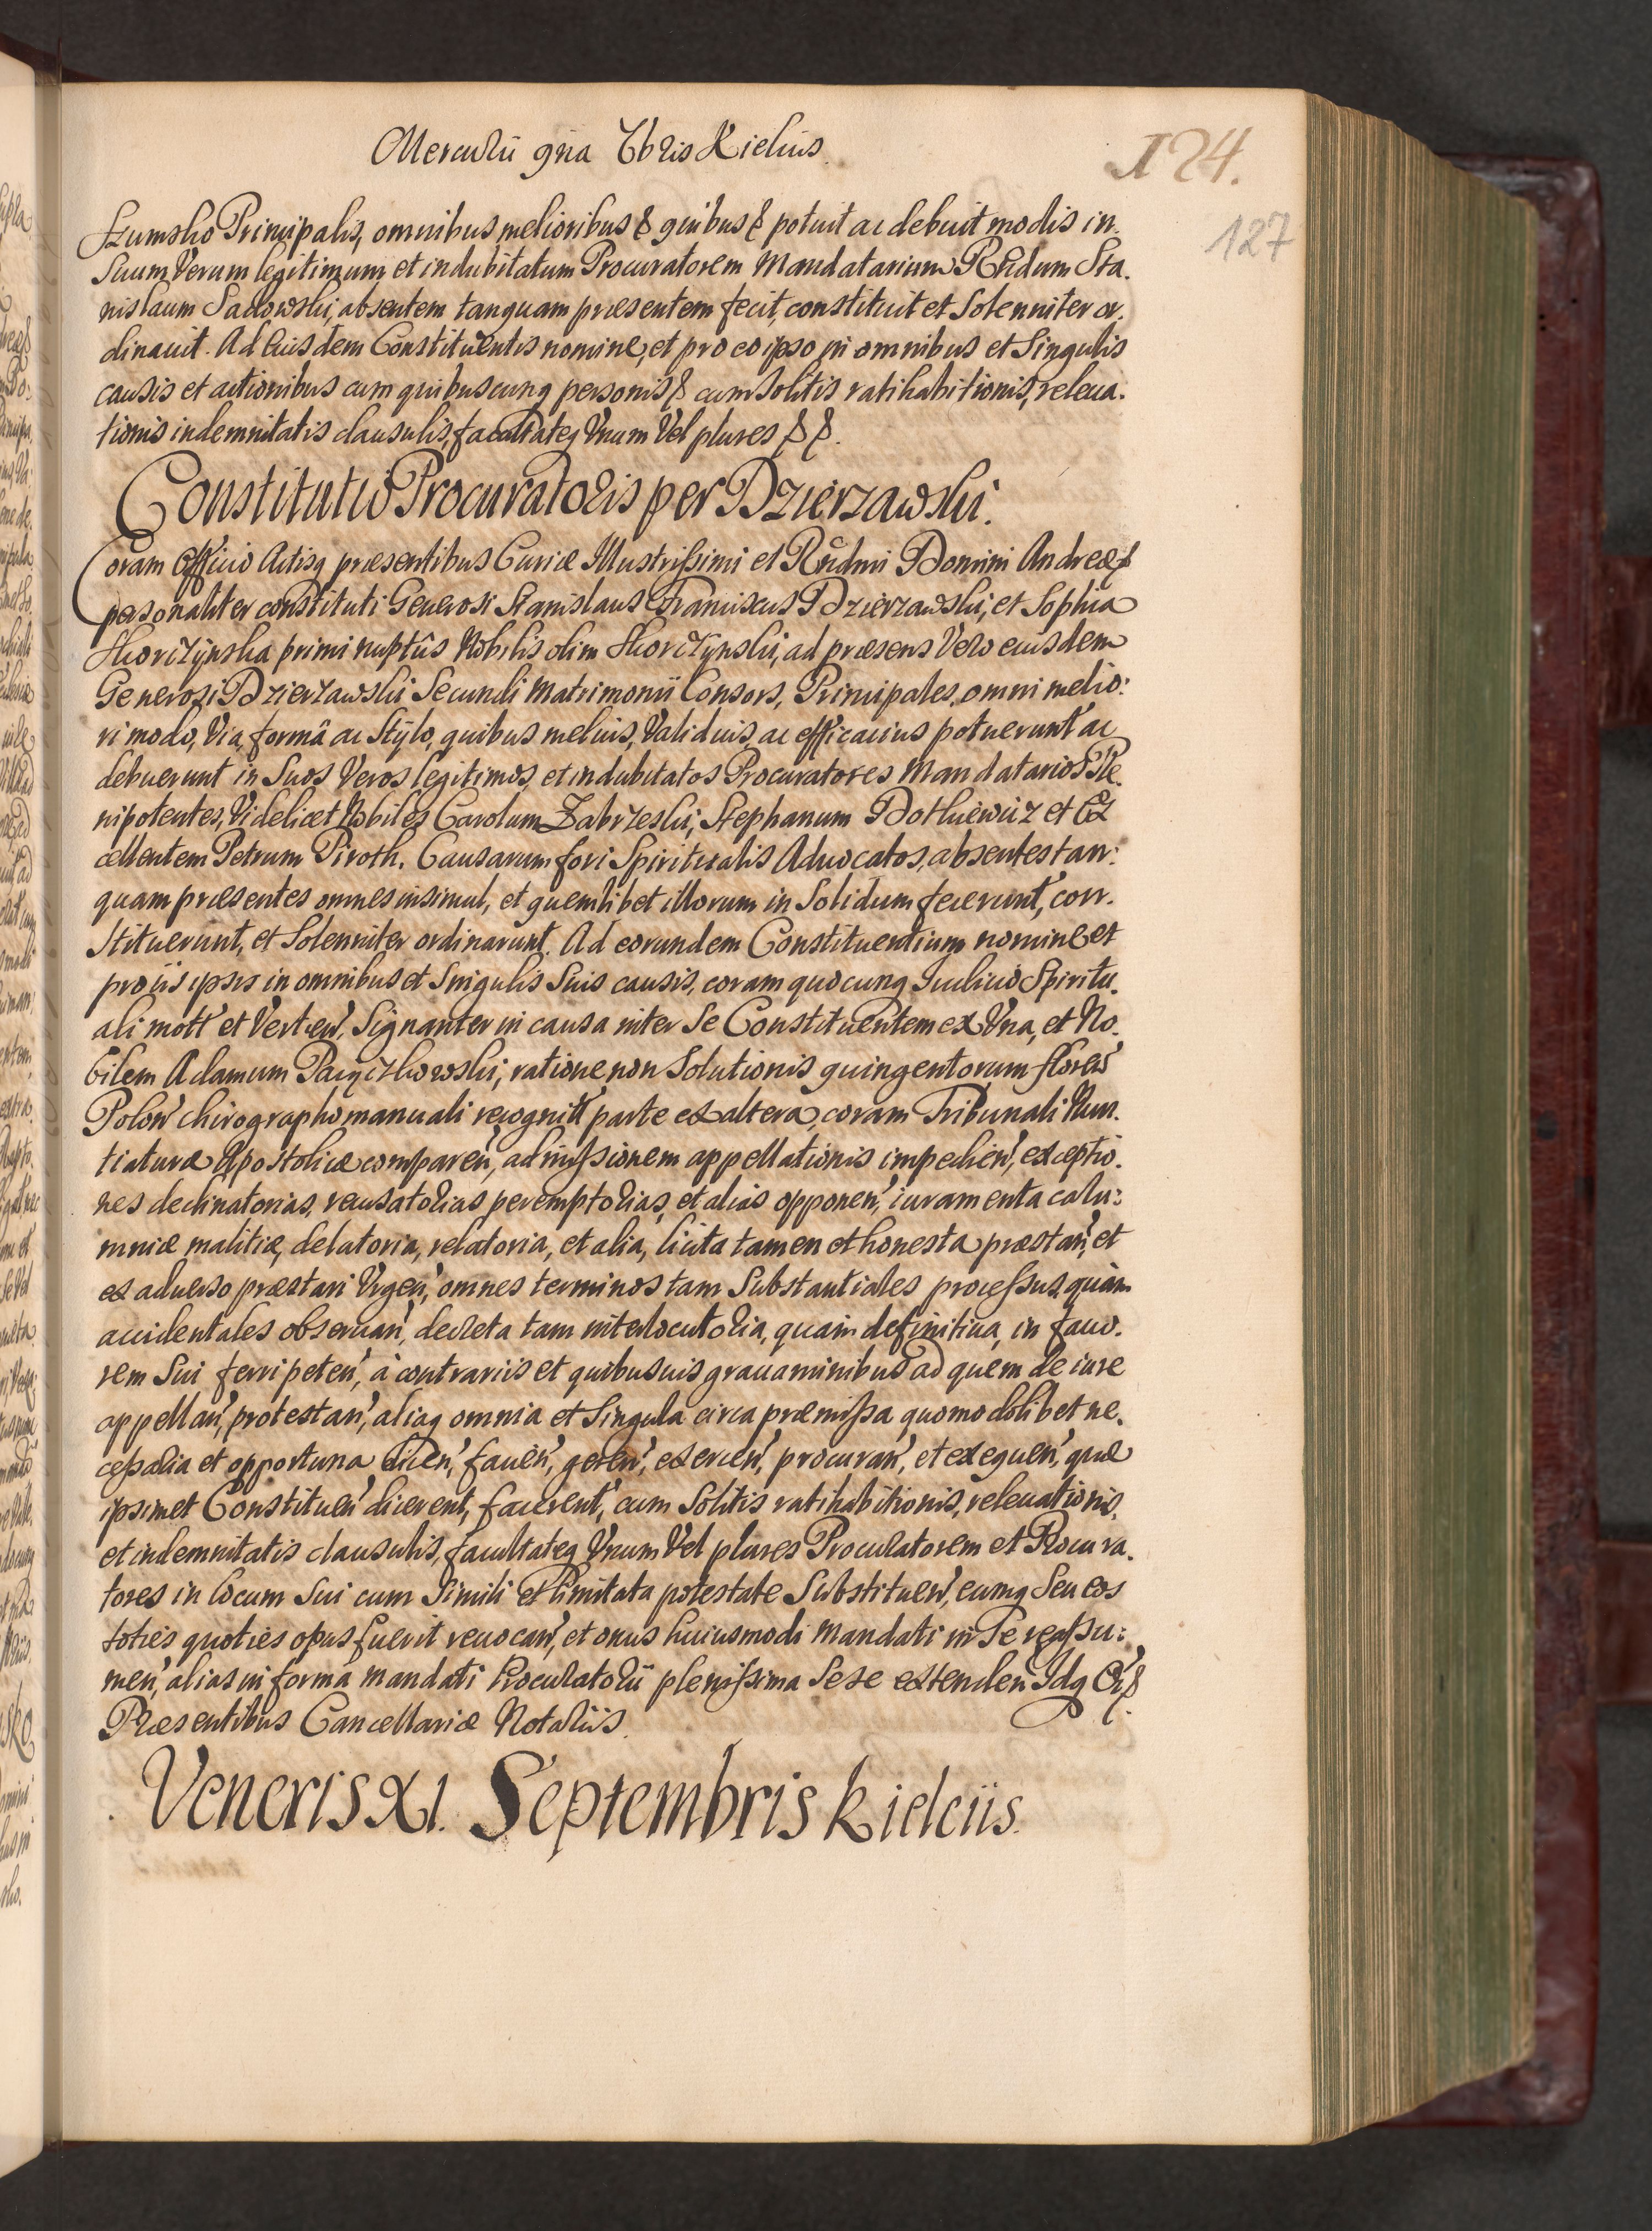 Mercurii 9na 7bris Kielciis.
124.
127
Szumsko Principalis, omnibus melioribus & quibus & potuit ac debuit modis in
Suum Verum legitimum et indubitatum Procuratorem Mandatarium Rndum Sta.
nislaum Sadowski, absentem tanquam præsentem fecit, constituit et Solenniter or.
dinauit. Ad Eiusdem Constituentis nomine, et pro eo ipso in omnibus et Singulis
causis et actionibus cum quibuscunq personis & cum Solitis ratihabitionis, releua.
tionis indemnitatis clausulis, facultateq Vnum Vel plures & &.
Constitutio Procuratoris per Dzierzawski.
Coram Officio Actisq præsentibus Curiæ Illustrissimi et Rndmi Domini Andreæ &
personaliter constituti Generosi Stanislaus Franciscus Dzierzawski, et Sophia
Skorczynska primi nuptûs Nobilis olim Skorczynski, ad præsens Vero eiusdem
Generosi Dzierzawski Secundi Matrimonii Consors, Principales, omni melio:
ri modo, Via, formâ ac Stylo, quibus melius, Validius, ac efficacius potuerunt ac
debuerunt in Suos Veros legitimos, et indubitatos Procuratores Mandatarios Ple.
nipotentes, Videlicet Nobiles Carolum Zabrzeski, Stephanum Dotkiewicz et Ex
cellentem Petrum Piroth, Causarum fori Spiritualis Aduocatos, absentes tan:
quam præsentes omnes insimul, et quemlibet illorum in Solidum fecerunt, con.
stituerunt, et Solenniter ordinarunt. Ad eorundem Constituentium nomine et
pro iis ipsis in omnibus et Singulis Suis causis, coram quocunq Iudicio Spiritu.
ali mott et Verten, Signanter in causa inter Se Constituentem ex Vna, et No.
bilem Adamum Pączkowski, ratione non Solutionis quingentorum floren
Polon chirographo manuali recognitt parte ex altera, coram Tribunali Nun.
tiaturæ Apostolicæ comparen, admissionem appellationis impedien, exceptio.
nes declinatorias, recusatorias peremptorias, et alias opponen, iuramenta calu:
mniæ malitiæ, delatoria, relatoria, et alia, licita tamen et honesta præstan, et
ex aduerso præstari Vrgen, omnes terminos tam Substantiales processus, quàm
accidentales obseruan, decreta tam interlocutoria, quam definitiua, in fauo.
rem Sui ferri peten, à contrariis et quibusuis grauaminibus ad quem de iure
appellan, protestan, aliaq omnia et Singula circa præmissa quomodolibet ne.
cessaria et opportuna dicen, facien, geren, exercen, procuran, et exequen, quæ
ipsimet Constituen dicerent, facerent, cum Solitis ratihabitionis, releuationis,
et indemnitatis clausulis, facultateq Vnum Vel plures Procuratorem et Procura.
tores in locum Sui cum Simili et limitata potestate Substituen, eumq Seu eos
toties quoties opus fuerit reuocan, et onus huiusmodi Mandati in Se reassu:
men, alias in formâ Mandati Procuratorii plenissima Sese extenden Idq &
Præsentibus Cancellariæ Notariis.
Veneris XI. Septembris Kielciis.